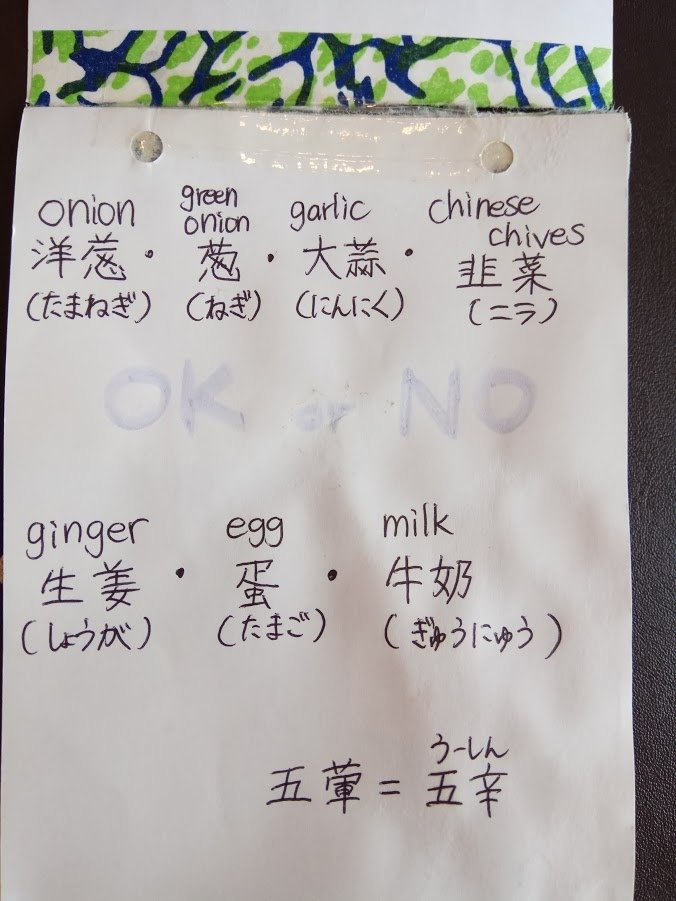 onion green onion garlic chinese chives
洋葱・葱・大蒜・韭菜
(たまねぎ) (ねぎ) (にんにく) (ニラ)
OK or NO
ginger egg milk
生姜・蛋・牛奶
(しょうが) (たまご) (ぎゅうにゅう)
うーしん
五葷=五辛